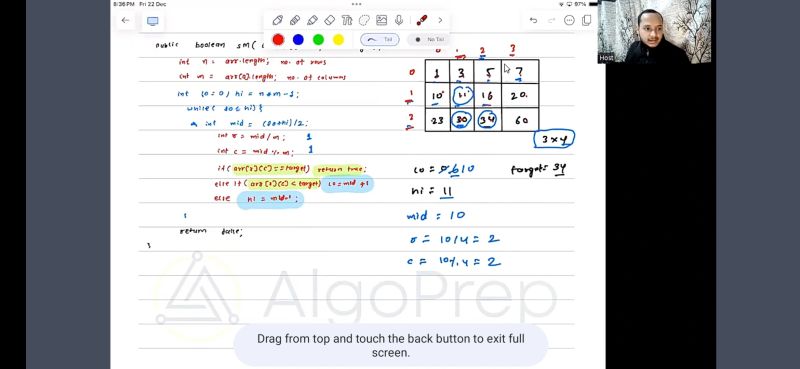 8:36 PM Fri 22 Dec
97%
Tail
No Tail
Host
public boolean sm(
int n = arr.length; no. of rows
int m = arr[0].length; no. of columns
int lo = 0, hi = n*m-1;
while( lo <= hi) {
int mid = (lo+hi)/2;
int r = mid/m; 1
int c = mid % m; 1
if( arr[r][c] == target) return true;
else if( arr[r][c] < target) lo = mid+1
else hi = mid-1;
}
return false;
}
1 2 3
0 1 3 5 7
1 10 11 16 20
2 23 30 34 60
3x4
lo = 0 6 10
target = 34
hi = 11
mid = 10
r = 10/4 = 2
c = 10%4 = 2
AlgoPrep
Drag from top and touch the back button to exit full
screen.